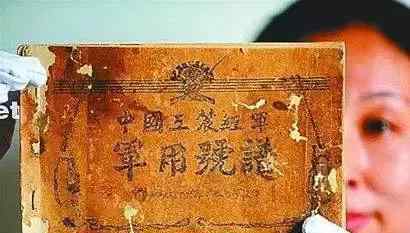 et
中國工農紅軍
軍用號譜